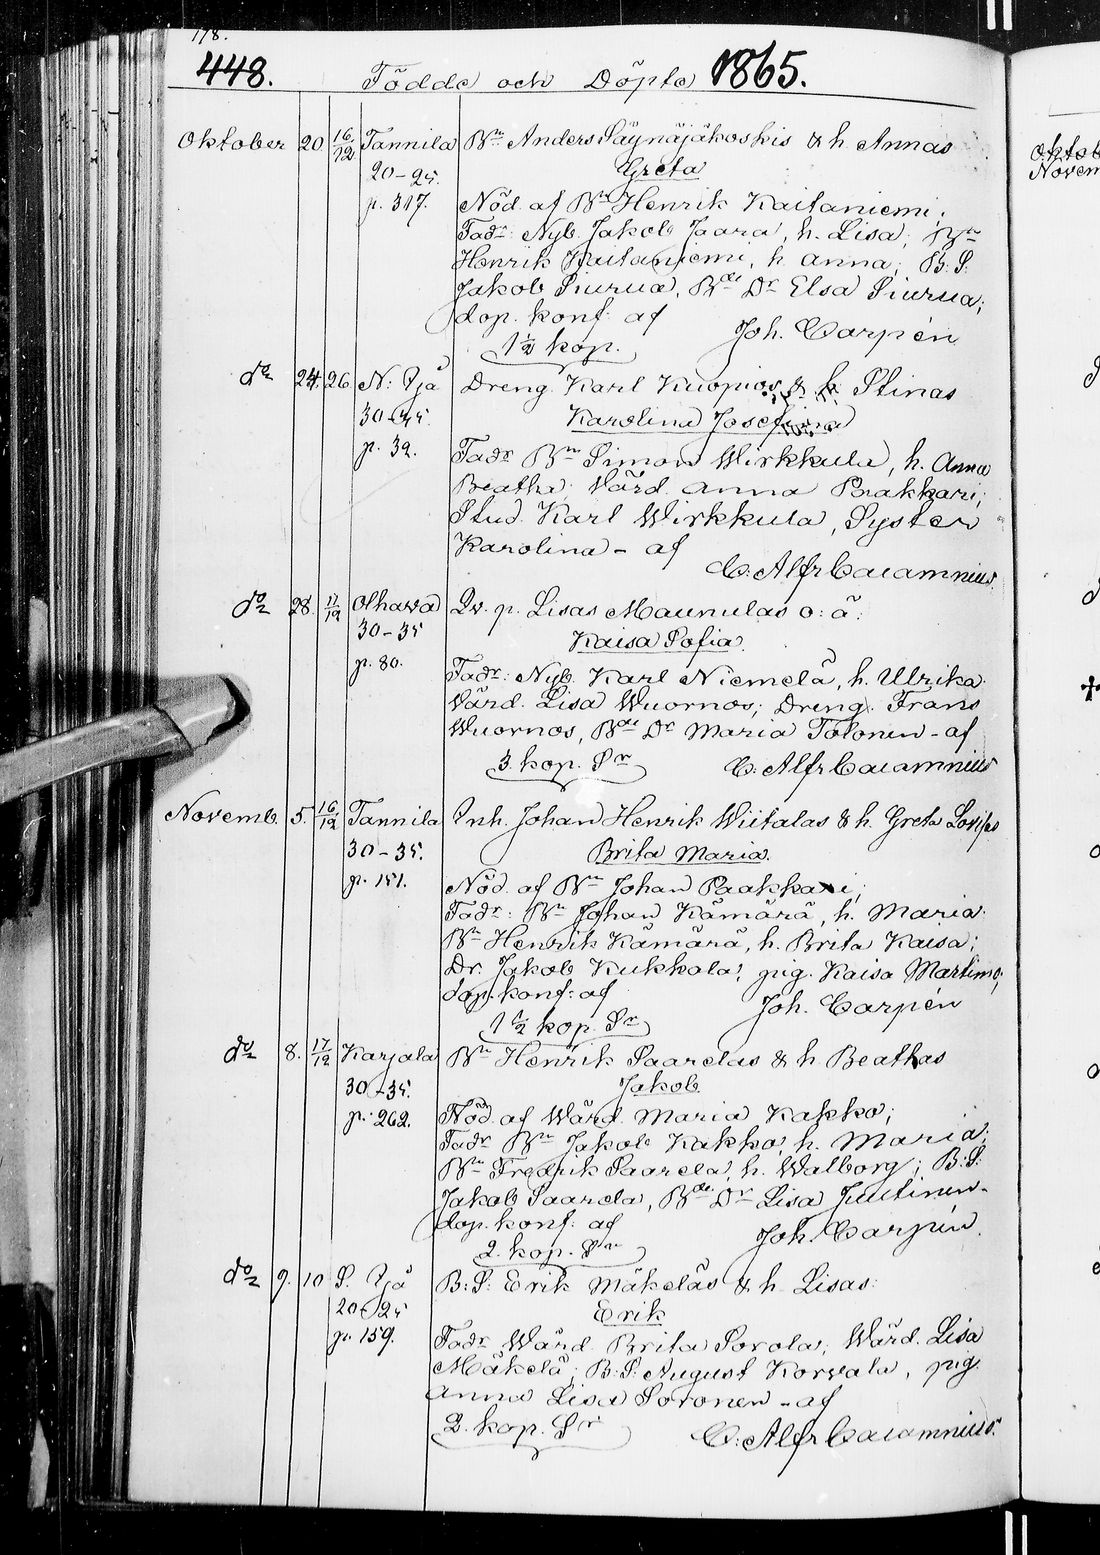 178.
448. Födde och Döpte 1865.
Oktober 20 16/12 Tannila Bn Anders Säynäjäkoskis & h. Annas
20-25. Greta
p. 317. Nöd. af Bn Henrik Kaitaniemi;
Fadr: Nyb. Jakob Jaara, h. Lisa; Bn
Henrik Kaitaniemi, h. Anna; B. S.
Jakob Siurua, Bde Dr Elsa Siurua;
dop. konf. af Joh. Carpén
1½ kop.
do 24. 26 N: Ijå Dreng Karl Kuopios & h. Stinas
30-35. Karolina Josefina
p. 32. Fadr Bn Simon Wirkkula, h. Anna
Beatha; Värd. Anna Paakkari;
Stud. Karl Wirkkula, Syster
Karolina - af
C. Alfr Cajamnius
do 28. 17/12 Olhava Qv. p. Lisas Maunulas o: ä:
30-35 Kaisa Sofia.
p. 80. Fadr: Nyb. Karl Niemelä, h. Ulrika
Värd. Lisa Wuornos; Dreng. Frans
Wuornos, Bde Dr Maria Tolonen - af
3. kop. Sr C. Alfr Cajamnius
Novemb. 5. 16/12 Tannila Inh. Johan Henrik Wiitalas & h. Greta Lovisas
30-35. Brita Maria.
p. 151. Nöd. af Bn Johan Paakkari;
Fadr: Bn Johan Kämärä, h. Maria;
Bn Henrik Kämärä, h. Brita Kaisa;
Dr. Jakob Kukkola, pig. Kaisa Martimo;
dop. konf: af Joh. Carpén
1½ kop. Sr
do 8. 17/12 Karjala Bn Henrik Saarelas & h. Beathas
30-35. Jakob
p. 262. Nöd. af Wärd. Maria Kakko;
Fadr Bn Jakob Kakko, h. Maria;
Bn Fredrik Saarela, h. Walborg; B: S:
Jakob Saarela, Bde Dr Lisa Juutinen -
dop. konf: af Joh. Carpén
2. kop. Sr
do 9. 10 S. Ijå B: S: Erik Mäkeläs & h. Lisas:
20-25 Erik
p. 159. Fadr Wärd. Brita Sorola; Wärd. Lisa
Mäkelä; B: S: August Korvala, pig.
Anna Lisa Soronen - af
2. kop. Sr C. Alfr Cajamnius